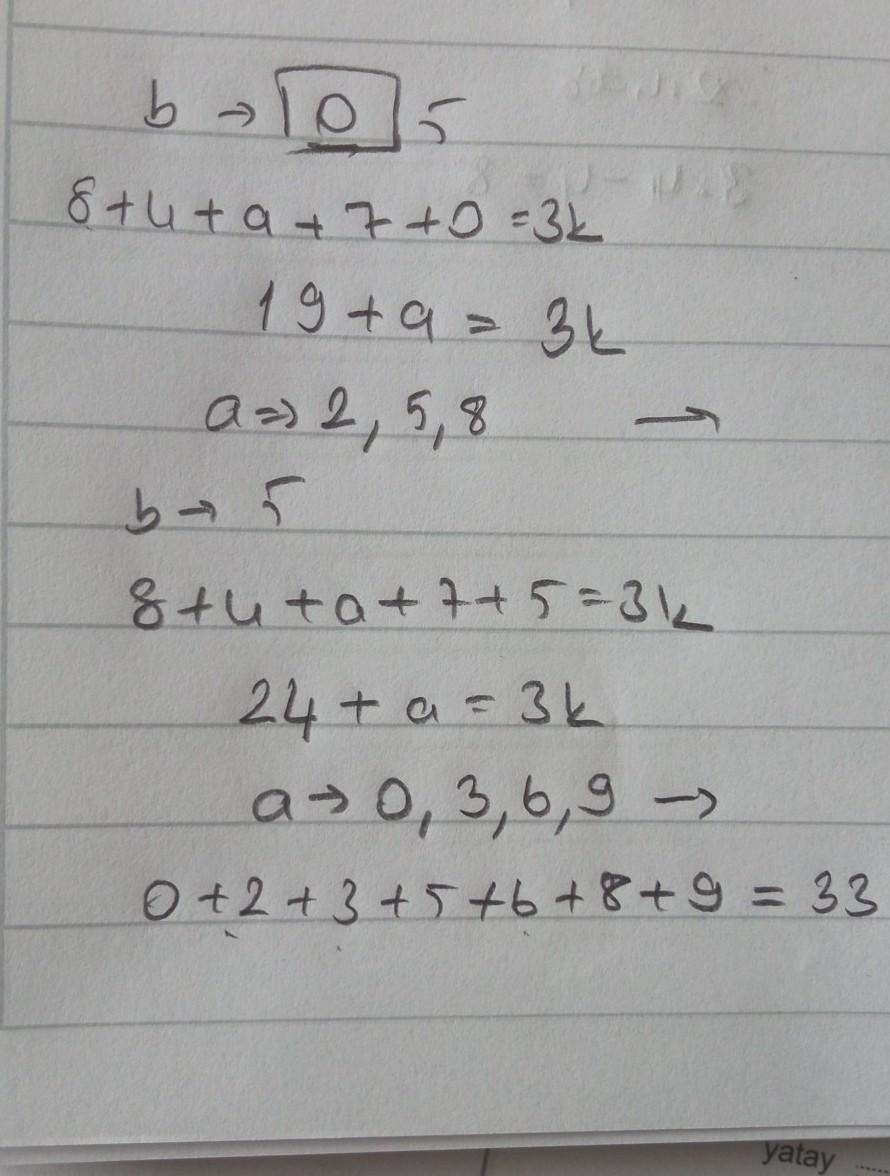 b → 0 5
8+4+a+7+0=3k
19+a=3k
a⇒2,5,8 →
b→ 5
8+4+a+7+5=3k
24+a=3k
a→0,3,6,9 →
0+2+3+5+6+8+9=33
yatay